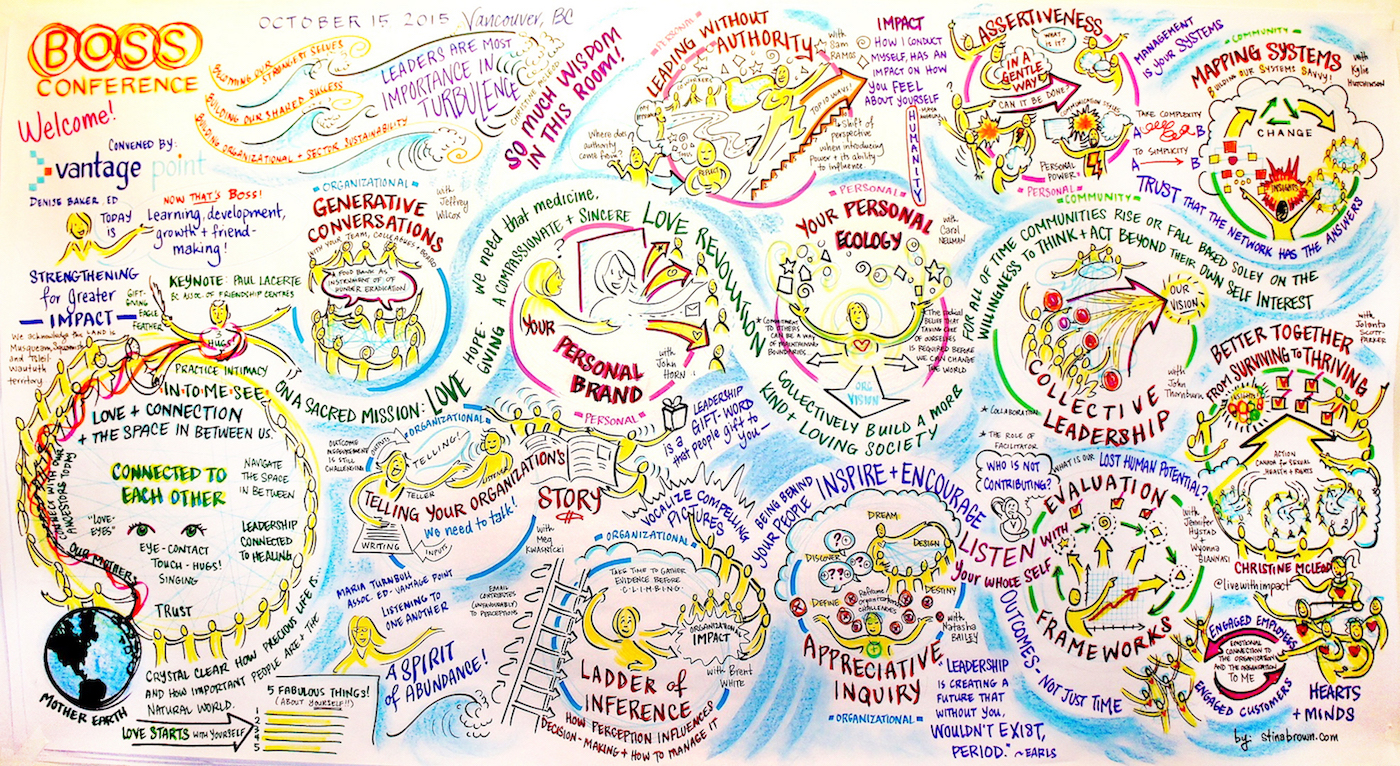 OCTOBER 15 2015 Vancouver, BC
BOSS
CONFERENCE
Welcome!
CONVENED BY:
vantage point
DENISE BAKER, ED
TODAY
IS
NOW THAT'S BOSS!
Learning, development,
growth + friend-
making!
STRENGTHENING
for Greater
IMPACT
BECOMING OUR STRONGEST SELVES
BUILDING OUR SHARED SUCCESS
BUILDING ORGANIZATIONAL + SECTOR SUSTAINABILITY
LEADERS ARE MOST
IMPORTANCE IN
TURBULENCE
SO MUCH WISDOM
IN THIS ROOM!
KEYNOTE: PAUL LACERTE
BC ASSOC. OF FRIENDSHIP CENTRES
GIFT-
GIVING
EAGLE
FEATHER
HUGS!
We acknowledge the LAND is
Musqueam, Squamish
and tsleil-
waututh
territory
PRACTICE INTIMACY
IN-TO-ME-SEE
LOVE + CONNECTION
+ THE SPACE IN BETWEEN US.
CONNECTED TO
EACH OTHER
NAVIGATE
THE SPACE
IN BETWEEN
"LOVE-
EYES"
EYE-CONTACT
TOUCH-HUGS!
SINGING
LEADERSHIP
CONNECTED
TO HEALING
TRUST
CONNECT WITH OUR
ANCESTORS TODAY
OUR MOTHERS
MOTHER EARTH
CRYSTAL CLEAR HOW PRECIOUS LIFE IS
AND HOW IMPORTANT PEOPLE ARE + THE
NATURAL WORLD.
LOVE STARTS WITH YOURSELF
5 FABULOUS THINGS!
(ABOUT YOURSELF!!)
1
2
3
4
5
ON A SACRED MISSION: LOVE
HOPE-
GIVING
We need that medicine,
A COMPASSIONATE + SINCERE
LOVE REVOLUTION
ORGANIZATIONAL
GENERATIVE
CONVERSATIONS
WITH YOUR TEAM, COLLEAGUES + BOARD
with
Jeffrey
Wilcox
A FOOD BANK AS
INSTRUMENT OF
HUNGER ERADICATION
YOUR
PERSONAL
BRAND
with
John
HORN
PERSONAL
PERSONAL
LEADING WITHOUT
AUTHORITY
With
Sam
RAMOS
COWORKERS
TOP 10 WAYS!
Where does
authority
come from?
REFLECT
Shift of
perspective
when introducing
Power + its ability
to influence.
IMPACT
HOW I CONDUCT
MYSELF, HAS AN
IMPACT ON HOW
YOU FEEL
ABOUT YOURSELF
MAYA
HUMANITY
ASSERTIVENESS
WHAT
IS IT?
IN A
GENTLE
WAY
CAN IT BE DONE?
COMMUNICATION STYLES
PERSONAL
POWER
PERSONAL
MANAGEMENT
IS YOUR SYSTEMS
COMMUNITY
MAPPING SYSTEMS
BUILDING OUR SYSTEMS SAVVY!
with
Kylie
HUTCHINSON
CHANGE
INSIGHTS
TAKE COMPLEXITY
A B
TO SIMPLICITY
A B
TRUST THAT THE NETWORK HAS THE ANSWERS
PERSONAL
YOUR PERSONAL
ECOLOGY
with
Carol
NEUMAN
COMMITMENT
TO OTHERS
CAN BE A WAY
OF MAINTAINING
BOUNDARIES
The radical
BELIEF THAT
TAKING CARE
OF OURSELVES
IS REQUIRED BEFORE
WE CAN CHANGE
THE WORLD
ORG
VISION
COLLECTIVELY BUILD A MORE
KIND + LOVING SOCIETY
COMMUNITY
FOR ALL OF TIME COMMUNITIES RISE OR FALL BASED SOLEY ON THE
WILLINGNESS TO THINK + ACT BEYOND THEIR OWN SELF INTEREST
OUR
VISION
COLLECTIVE
LEADERSHIP
with
John
Thornburn
COLLABORATION
THE ROLE OF
FACILITATOR
WHO IS NOT
CONTRIBUTING?
WHAT IS OUR LOST HUMAN POTENTIAL?
BETTER TOGETHER
FROM SURVIVING TO THRIVING
with
Jolanta
SCOTT-
PARKER
INSIGHTS!
ACTION
CANADA FOR SEXUAL
HEALTH + RIGHTS
OUTCOME
MEASUREMENT
IS STILL
CHALLENGING
OUTPUTS
ORGANIZATIONAL
TELLING!
TELLER
LISTENER
TELLING YOUR ORGANIZATION'S
STORY
We need to talk!
WRITING
INPUTS
with
Meg
KWASNICKI
LEADERSHIP
is a GIFT-WORD
that people gift to
YOU—
VOCALIZE COMPELLING
PICTURES
MARIA TURNBULL
ASSOC. ED - VANTAGE POINT
LISTENING TO
ONE ANOTHER
A SPIRIT
of ABUNDANCE!
EMAIL
CONTRIBUTES
(UNFAVOURABLY)
TO PERCEPTIONS
ORGANIZATIONAL
TAKE TIME TO GATHER
EVIDENCE BEFORE
CLIMBING
ORGANIZATIONAL
IMPACT
with Brent
WHITE
LADDER of
INFERENCE
HOW PERCEPTION INFLUENCES
DECISION-MAKING + HOW TO MANAGE IT
BEING BEHIND
YOUR PEOPLE
INSPIRE + ENCOURAGE
LISTEN WITH
YOUR WHOLE SELF
DREAM
DISCOVER
DESIGN
DEFINE
DESTINY
Reframe
Organizational
CHALLENGES
with
Natasha
BAILEY
APPRECIATIVE
INQUIRY
ORGANIZATIONAL
"LEADERSHIP
IS CREATING A
FUTURE THAT
WITHOUT YOU,
WOULDN'T EXIST,
PERIOD." ~EARLS
OUTCOMES - NOT JUST TIME
EVALUATION
FRAMEWORKS
with
Jennifer
HYSTAD
+
Wynona
GIANNASI
CHRISTINE McLEOD
@livewithimpact
ENGAGED EMPLOYEES
EMOTIONAL
CONNECTION TO
THE ORGANIZATION
AND THE ORGANIZATION
TO ME
ENGAGED CUSTOMERS
HEARTS
+ MINDS
by: stinabrown.com